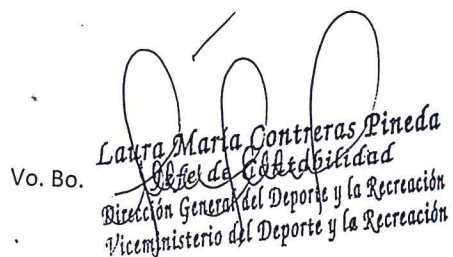 Vo. Bo.
Laura María Contreras Pineda
Jefe de Contabilidad
Dirección General del Deporte y la Recreación
Viceministerio del Deporte y la Recreación